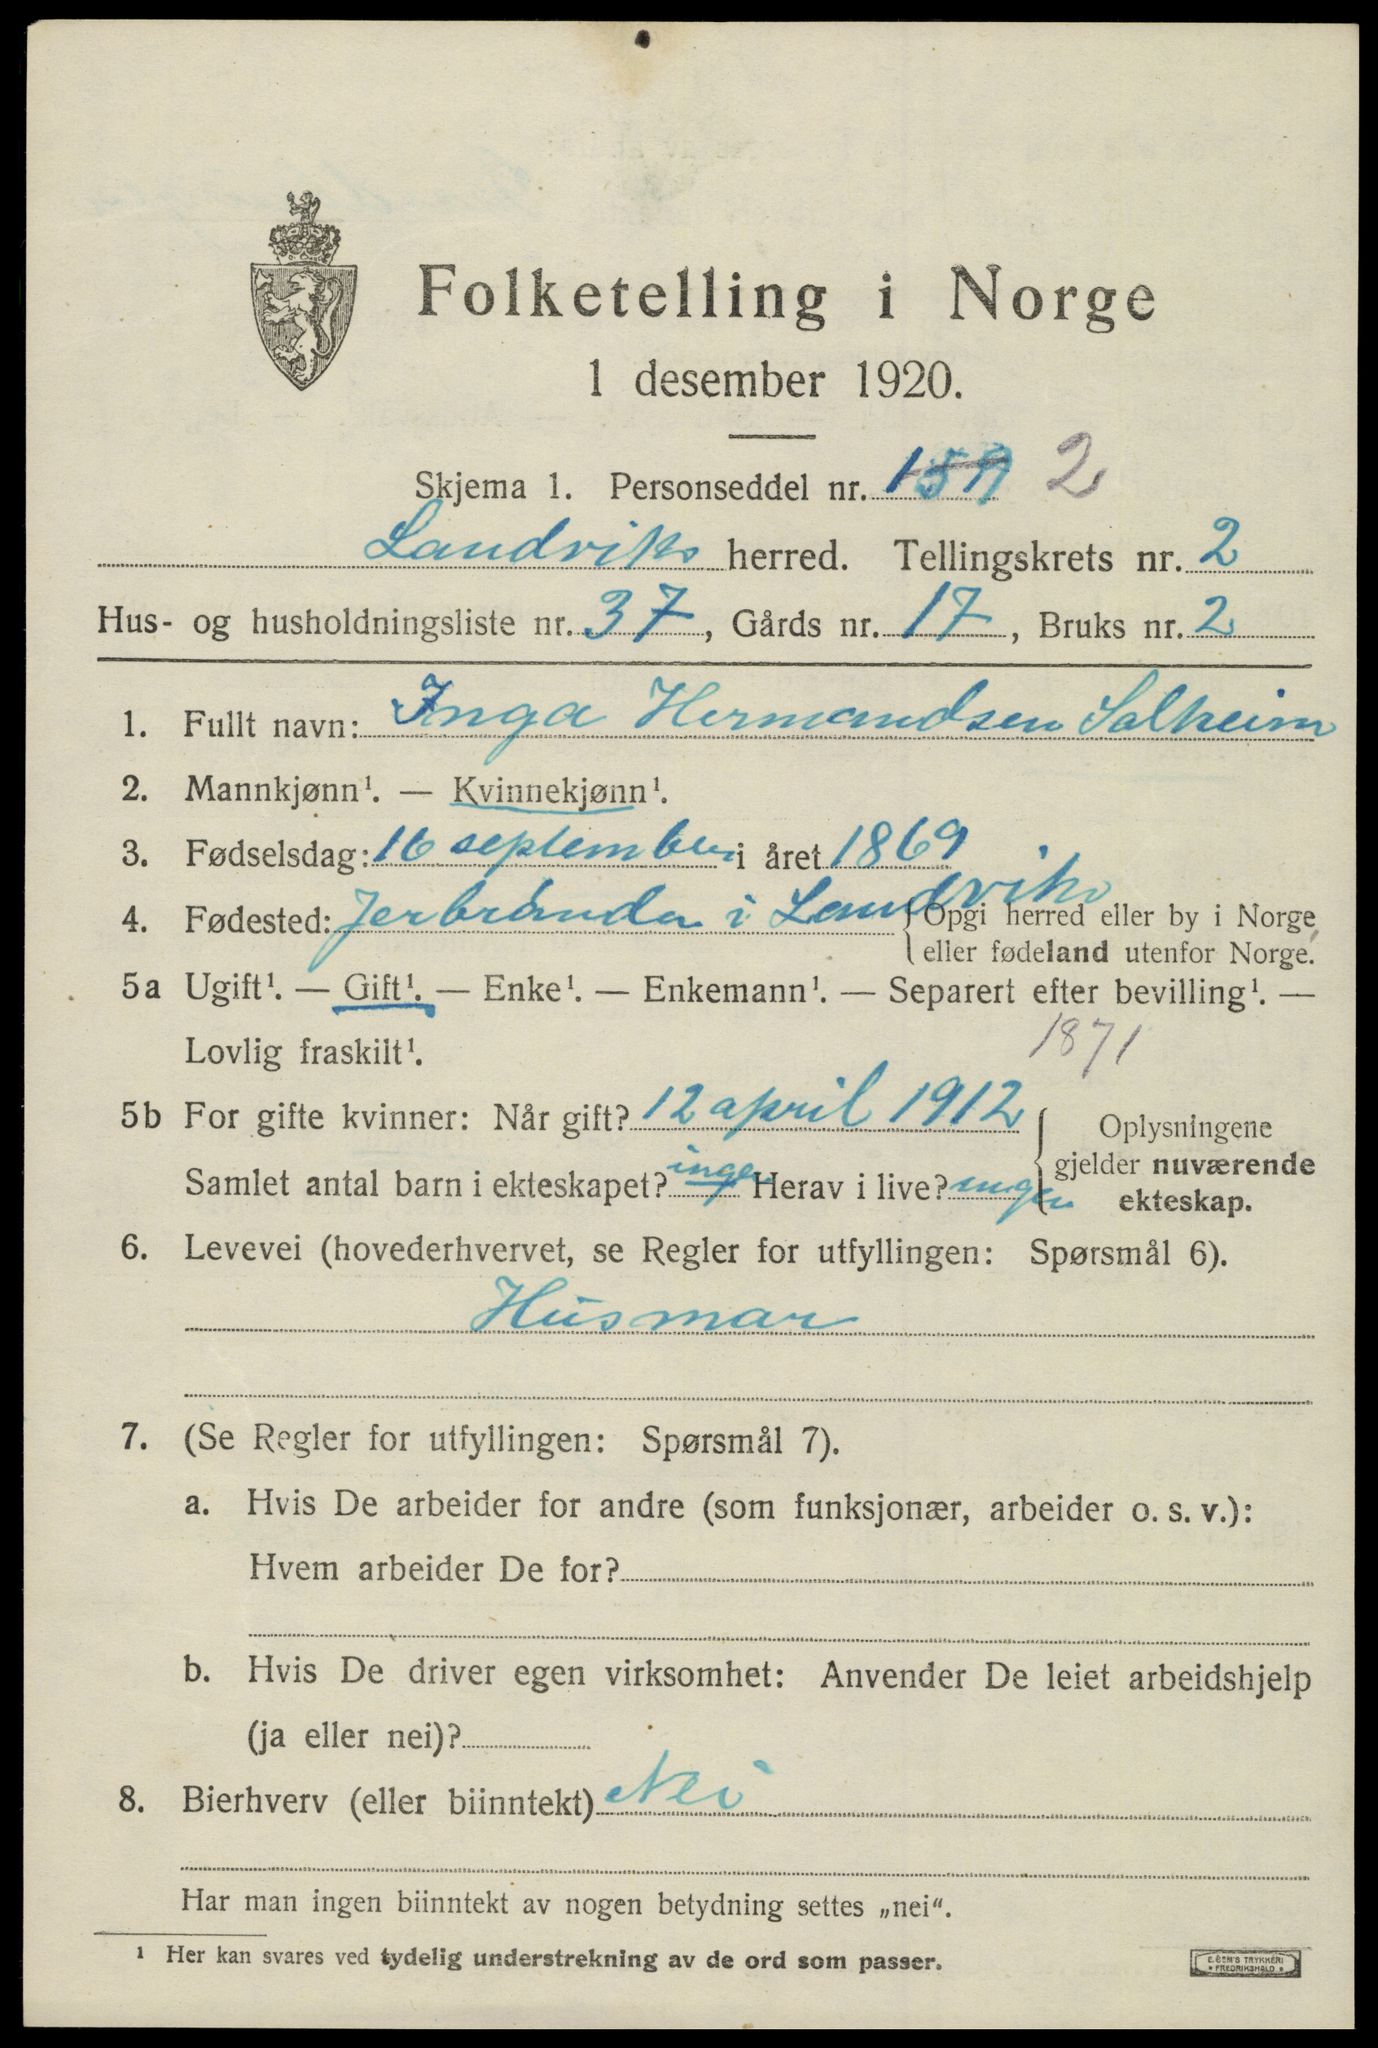 Folketelling i Norge
1 desember 1920.
Skjema 1. Personseddel nr. 159 2
Landviks herred. Tellingskrets nr. 2
Hus- og husholdningsliste nr. 37, Gårds nr. 17, Bruks nr. 2
1. Fullt navn: Inga Hermandsen Salheim
2. Mannkjønn¹. — Kvinnekjønn¹.
3. Fødselsdag: 16 september i året 1869
4. Fødested: i Landvik
{Opgi herred eller by i Norge,
eller fødeland utenfor Norge.
5a Ugift¹. — Gift¹. — Enke¹. — Enkemann¹. — Separert efter bevilling¹. —
Lovlig fraskilt¹.
1871
5b For gifte kvinner: Når gift? 12 april 1912
Samlet antal barn i ekteskapet? ingen Herav i live? ingen
{Oplysningene
gjelder nuværende
ekteskap.
6. Levevei (hovederhvervet, se Regler for utfyllingen: Spørsmål 6).
Husmor
7. (Se Regler for utfyllingen: Spørsmål 7).
a. Hvis De arbeider for andre (som funksjonær, arbeider o. s. v.):
Hvem arbeider De for?
b. Hvis De driver egen virksomhet: Anvender De leiet arbeidshjelp
(ja eller nei)?
8. Bierhverv (eller biinntekt) Nei
Har man ingen biinntekt av nogen betydning settes „nei“.
¹ Her kan svares ved tydelig understrekning av de ord som passer.
E. SEM'S TRYKKERI
• FREDRIKSHALD •